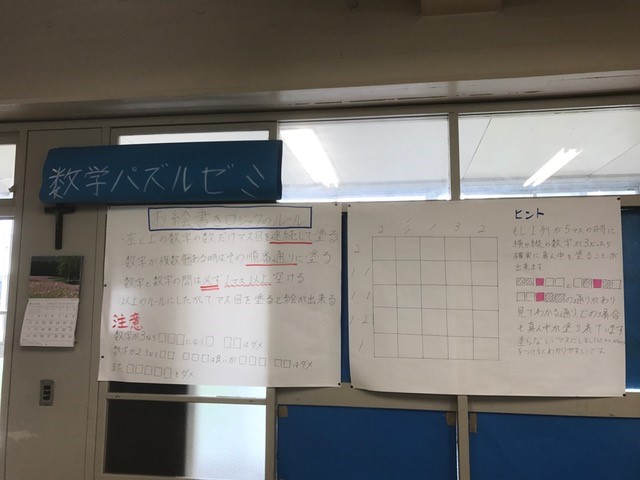 数学パズルゼミ
お絵書きロジックのルール
・左と上の数字の数だけマス目を連続して塗る
数字が複数ある時はその順番通りに塗る
数字と数字の間は必ず1マス以上空ける
以上のルールにしたがってマス目を塗ると絵が出来る
注意
数字が3なら□□□になり□ □□はダメ
数字が2 3なら□□ □□□は良いが□□□ □□はダメ
□□□□□もダメ
1 3 2
2
1 1
1 1
1 2
1
ヒント
もし1列が5マスの時に
横や縦の数字が3だったら
確実に真ん中を塗ることが
出来ます
の3通りがあり
見てわかる通りどの場合
も真ん中が塗られています
塗らないマスに
をつけるとわかりやすいです